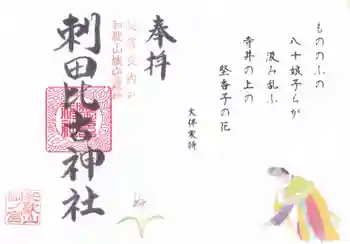 もののふの
八十娘子らが
汲み乱ふ
寺井の上の
堅香子の花
大伴家持
奉拝
刺田比古神社